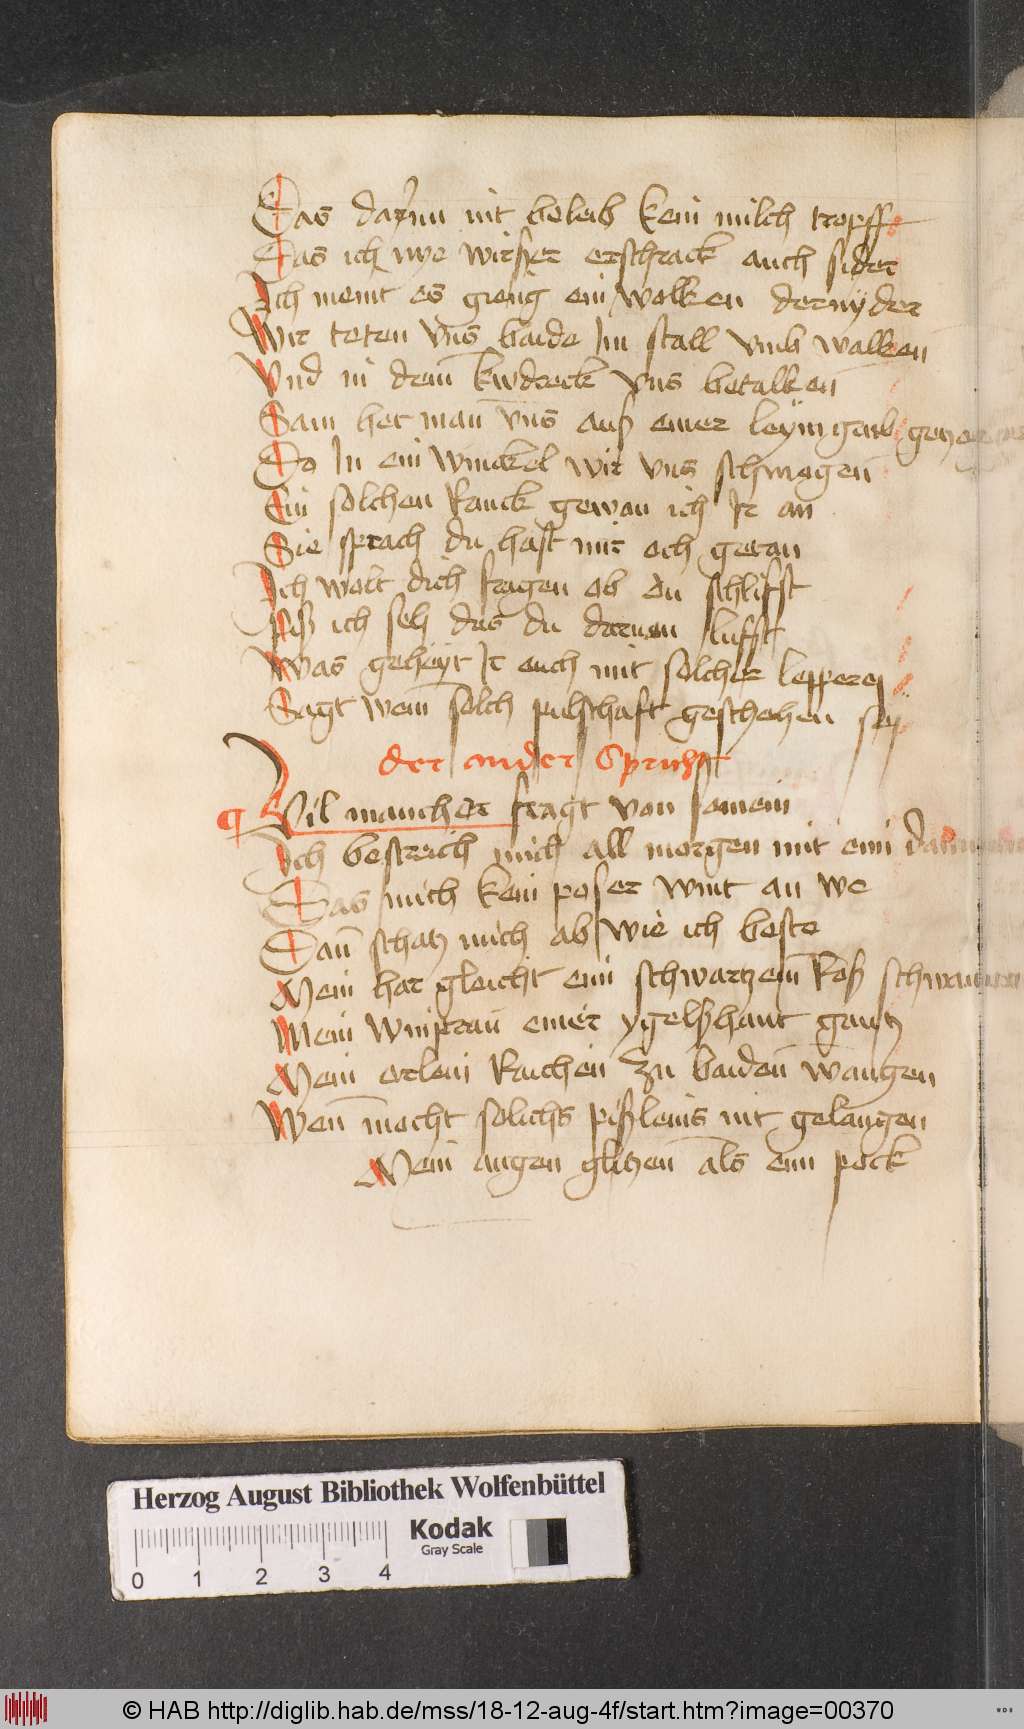 Das darinn nit beleib kein milch tropff
Das ich nye wirser erschrack auch sider
Ich meint es gieng ein wolken dernyder
Wir teten vns baide Im stall vmb walken
Vnd in dem kwdreck vns betalken
Sam het man vns auß einer leymgrub
Do In ein winckel wir vns schmogen
Ein solchen Ranck gewan ich Ir an
Sie sprach du hast mir och getan
Ich wolt dich fragen ob du schlifst
piß ich seh das du dornen lufst
Was geheyt Ir euch mit solcher lepperey
Sagt wem solch pulschaft geschehen sey
der ander Spruch
Vil mancher fragt von
Ich bestreich mich all morgen mit eim
Das mich kein poser wint an we
Dan schatz mich ab wie ich beste
Mein har gleicht eim schwartzem Roß
Mein winpran einer ygelßhaut gantz
Mein erlein Raichen zu baiden wangen
Wen mocht solichs pißleins nit gelangen
Mein augen glitzen als eim pock
Herzog August Bibliothek Wolfenbüttel
Kodak
Gray Scale
0 1 2 3 4
© HAB http://diglib.hab.de/mss/18-12-aug-4f/start.htm?image=00370